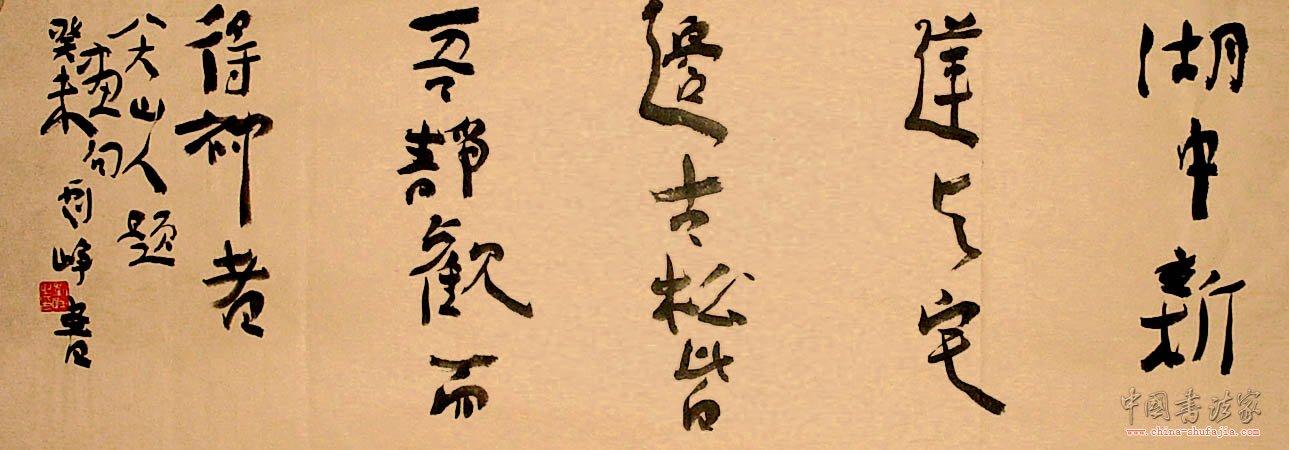 湖中新
蓮与宅
邊古松皆
吾静觀而
得神者
八大山人題
畫句
癸未峥書
中国书法家
www.china-shufajia.com